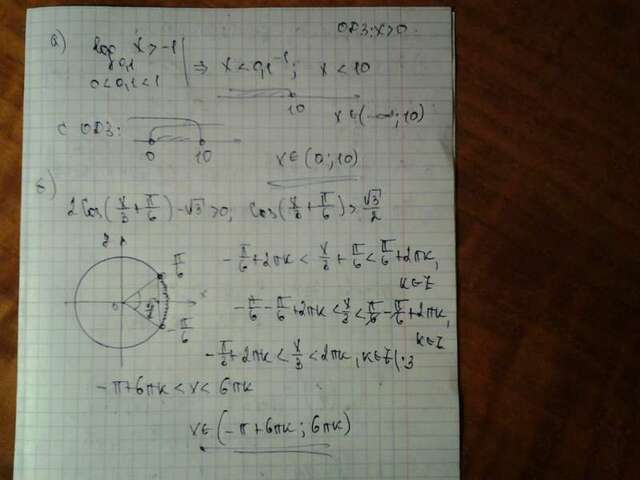 ОДЗ: x>0
а) log₀,₁ x > -1
0<0,1<1 ⇒ x < 0,1⁻¹; x < 10
10
x∈(-∞; 10)
с ОДЗ:
0 10
x∈(0; 10)
б)
2cos(x/3 + π/6) - √3 > 0; cos(x/3 + π/6) > √3/2
π/6
0 x
-π/6
-π/6 + 2πk < x/3 + π/6 < π/6 + 2πk,
k∈Z
-π/6 - π/6 + 2πk < x/3 < π/6 - π/6 + 2πk,
k∈Z
-π/6 + 2πk < x/3 < 2πk, k∈Z |·3
-π + 6πk < x < 6πk
x∈(-π + 6πk; 6πk)